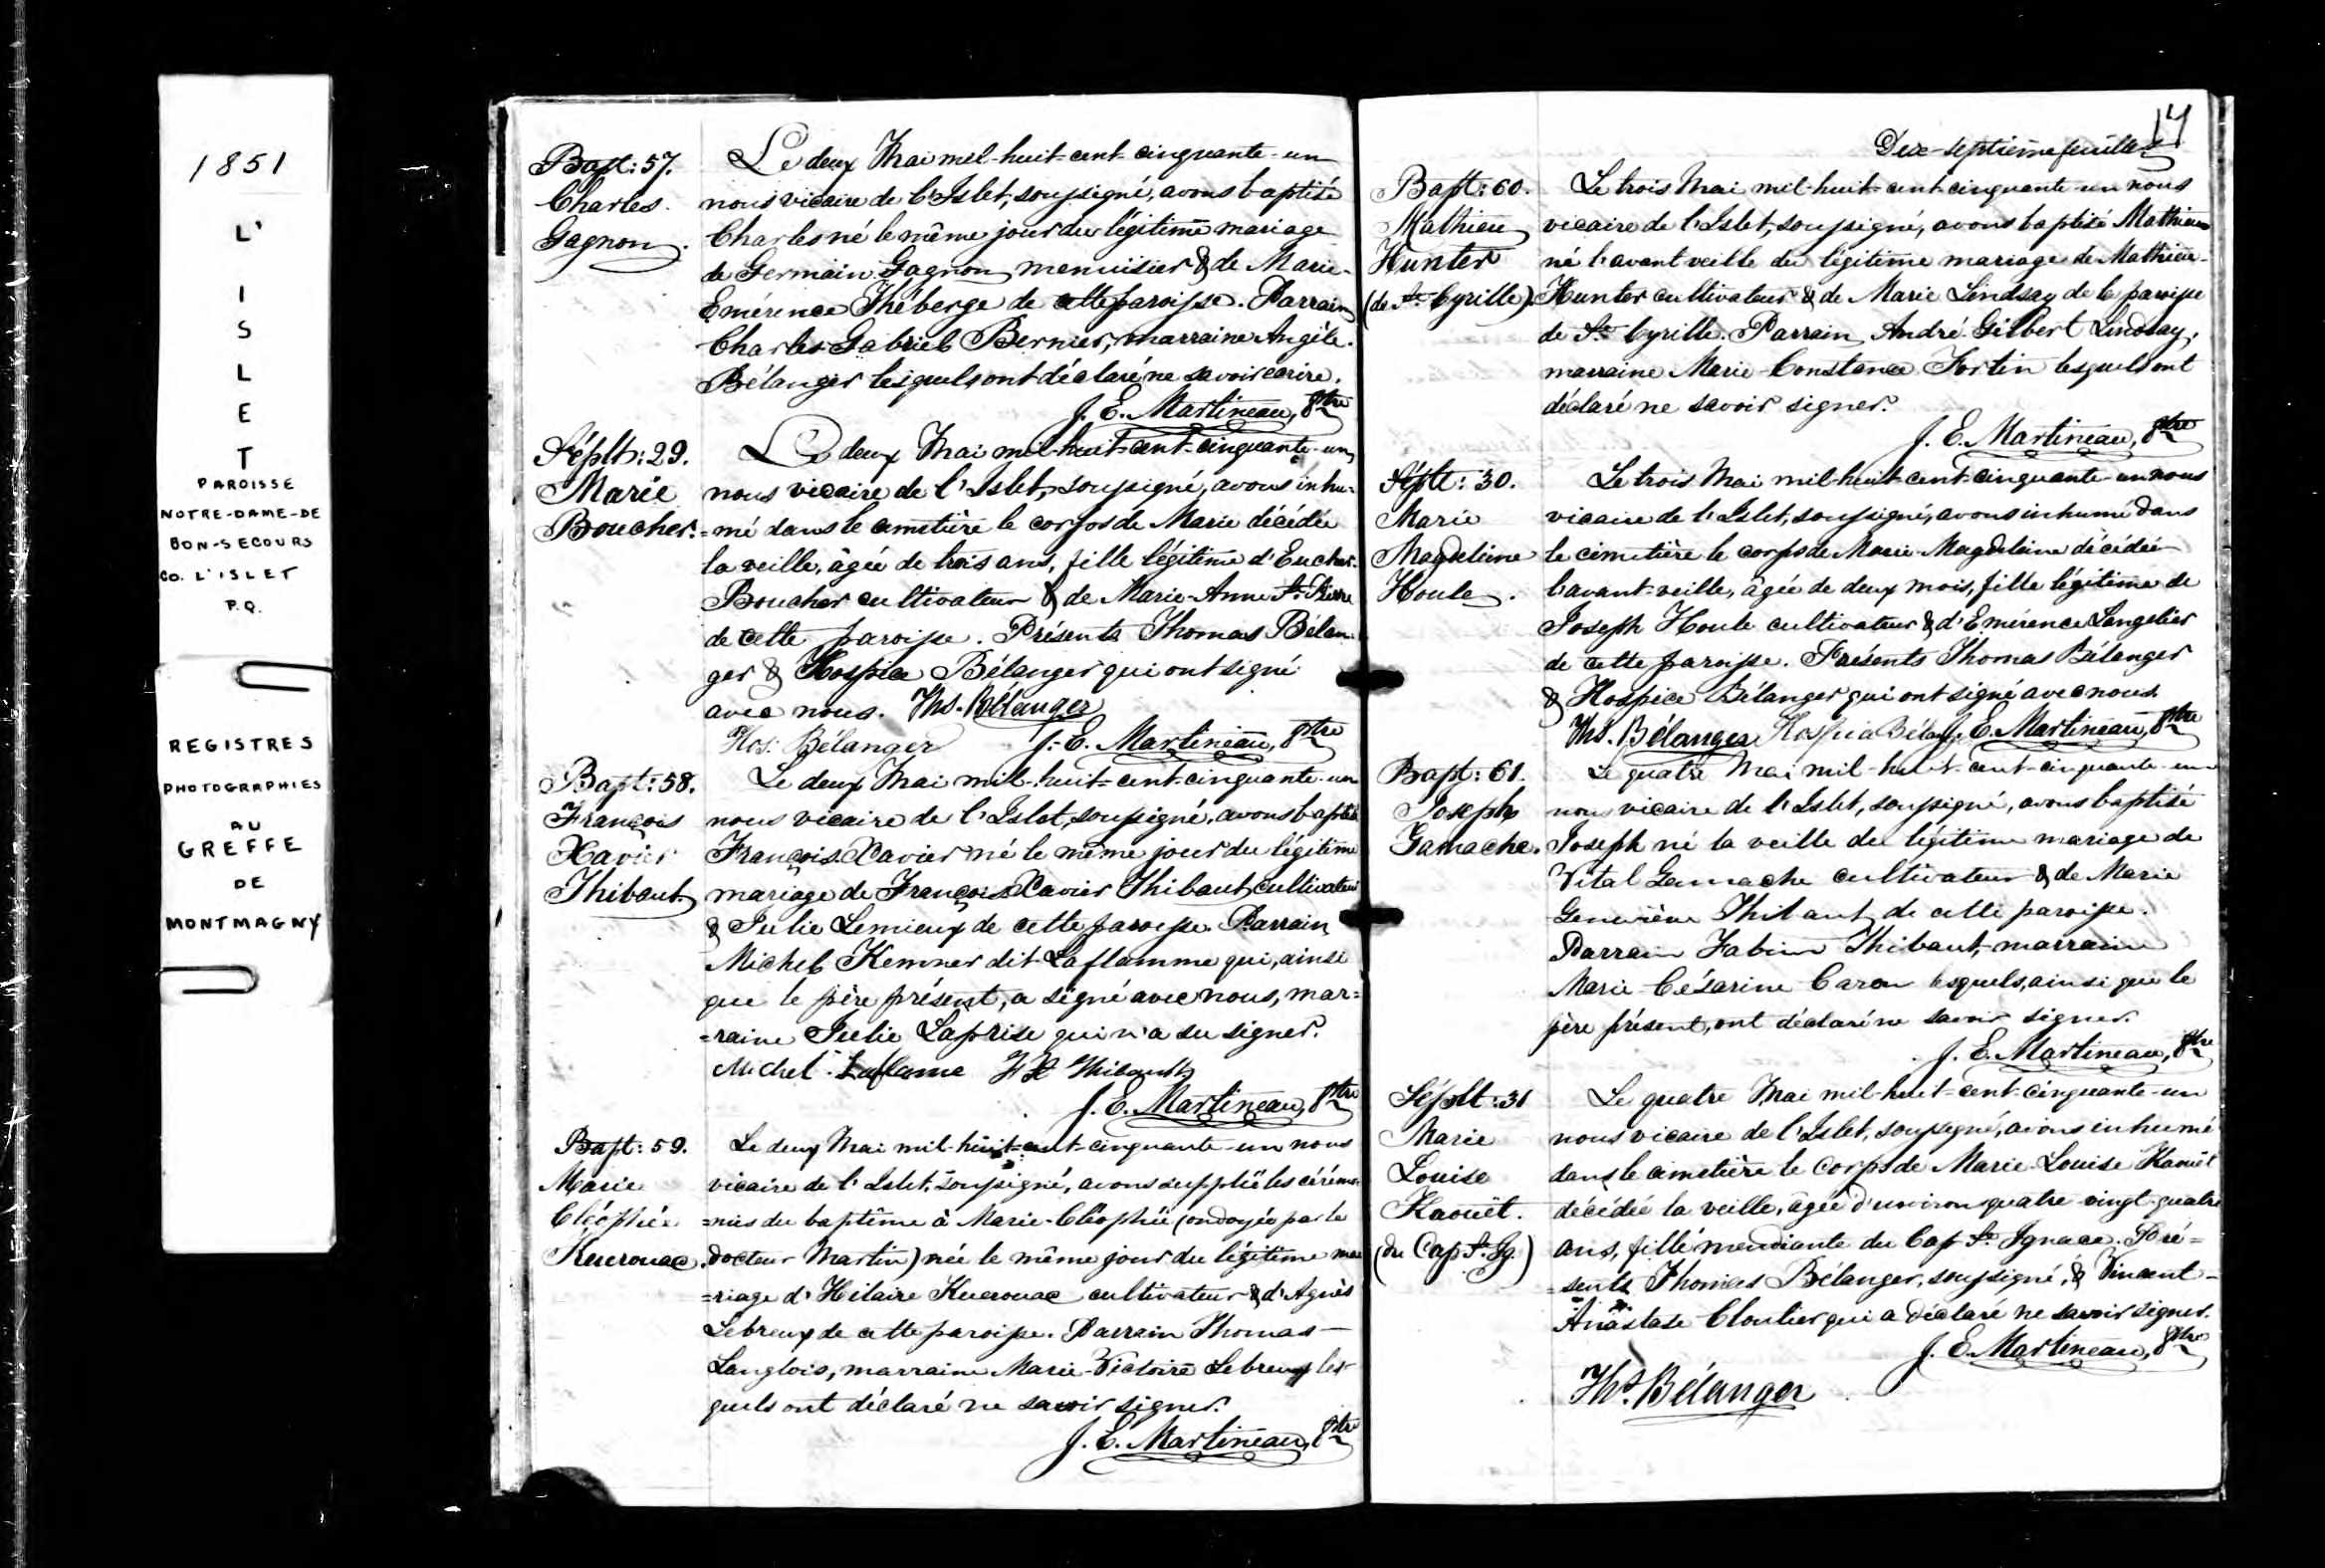 1851
L'
I
S
L
E
T
PAROISSE
NOTRE-DAME-DE
BON-SECOURS
CO. L'ISLET
P.Q.
REGISTRES
PHOTOGRAPHIES
AU
GREFFE
DE
MONTMAGNY
Bapt: 57.
Charles
Gagnon.
Le deux Mai mil-huit-cent-cinquante-un
nous vicaire de l'Islet, soussigné, avons baptisé
Charles né le même jour du légitime mariage
de Germain Gagnon menuisier & de Marie-
Emérence Théberge de cette paroisse. Parrain
Charles Gabriel Bernier, marraine Angèle
Bélanger lesquels ont déclaré ne savoir écrire.
J. E. Martineau, Ptre
Séplt: 29.
Marie
Boucher.
Le deux Mai mil-huit-cent-cinquante-un
nous vicaire de l'Islet, soussigné, avons inhu-
=mé dans le cimetière le corps de Marie décédée
la veille, âgée de trois ans, fille légitime d'Eucher
Boucher cultivateur & de Marie-Anne St. Pierre
de cette paroisse. Présents Thomas Bélan-
ger & Hospice Bélanger qui ont signé
avec nous. Ths. Bélanger
Hos: Bélanger J. E. Martineau, Ptre
Bapt: 58.
François
Xavier
Thibaut
Le deux Mai mil-huit-cent-cinquante-un
nous vicaire de l'Islet, soussigné, avons baptisé
François-Xavier né le même jour du légitime
mariage de François Xavier Thibaut, cultivateur
& Julie Lemieux de cette paroisse. Parrain
Michel Kemner dit Laflamme qui, ainsi
que le père présent, a signé avec nous, mar=
=raine Julie Laprise qui n'a su signer.
Michel Laflamme F X Thibault
J. E. Martineau, Ptre
Bapt: 59.
Marie
Cléophée
Kuerouac.
Le deux Mai mil-huit-cent-cinquante-un nous
vicaire de l'Islet, soussigné, avons suppléé les cérémo-
=nies du baptême à Marie-Cléophée (ondoyée par le
docteur Martin) née le même jour du légitime ma
=riage d'Hilaire Kuerouac cultivateur & d'Agnès
Lebreux de cette paroisse. Parrain Thomas
Langlois, marraine Marie-Victoire Lebreux les-
quels ont déclaré ne savoir signer.
J. E. Martineau, Ptre
17
Dix-septième feuillet
Bapt: 60.
Mathieu
Hunter
(de St. Cyrille)
Le trois Mai mil-huit-cent-cinquante-un nous
vicaire de l'Islet, soussigné, avons baptisé Mathieu
né l'avant veille du légitime mariage de Mathieu
Hunter cultivateur & de Marie Lindsay de la paroisse
de St. Cyrille. Parrain André Gilbert Lindsay,
marraine Marie-Constance Fortin lesquels ont
déclaré ne savoir signer.
J. E. Martineau, Ptre
Séplt: 30.
Marie
Magdeleine
Houle.
Le trois Mai mil-huit-cent-cinquante-un nous
vicaire de l'Islet, soussigné, avons inhumé dans
le cimetière le corps de Marie-Magdeleine décédée
l'avant-veille, âgée de deux mois, fille légitime de
Joseph Houle cultivateur & d'Emérence Langelier
de cette paroisse. Présents Thomas Bélanger
& Hospice Bélanger qui ont signé avec nous.
Ths. Bélanger Hospice Bélan J. E. Martineau, Ptre
Bapt: 61.
Joseph
Gamache.
Le quatre Mai mil-huit-cent-cinquante-un
nous vicaire de l'Islet, soussigné, avons baptisé
Joseph né la veille du légitime mariage de
Vital Gamache cultivateur & de Marie
Geneviève Thibaut de cette paroisse.
Parrain Fabien Thibaut, marraine
Marie-Cézarine Caron lesquels, ainsi que le
père présent, ont déclaré ne savoir signer.
J. E. Martineau, Ptre
Séplt: 31
Marie
Louise
Kaouët.
(du Cap St. Ig.)
Le quatre Mai mil-huit-cent-cinquante-un
nous vicaire de l'Islet, soussigné, avons inhumé
dans le cimetière le corps de Marie-Louise Kaouët
décédée la veille, âgée d'environ quatre-vingt-quatre
ans, fille mendiante du Cap St. Ignace. Pré=
=sents Thomas Bélanger, soussigné, & Vincent-
Anastase Cloutier qui a déclaré ne savoir signer.
J. E. Martineau, Ptre
Ths. Bélanger